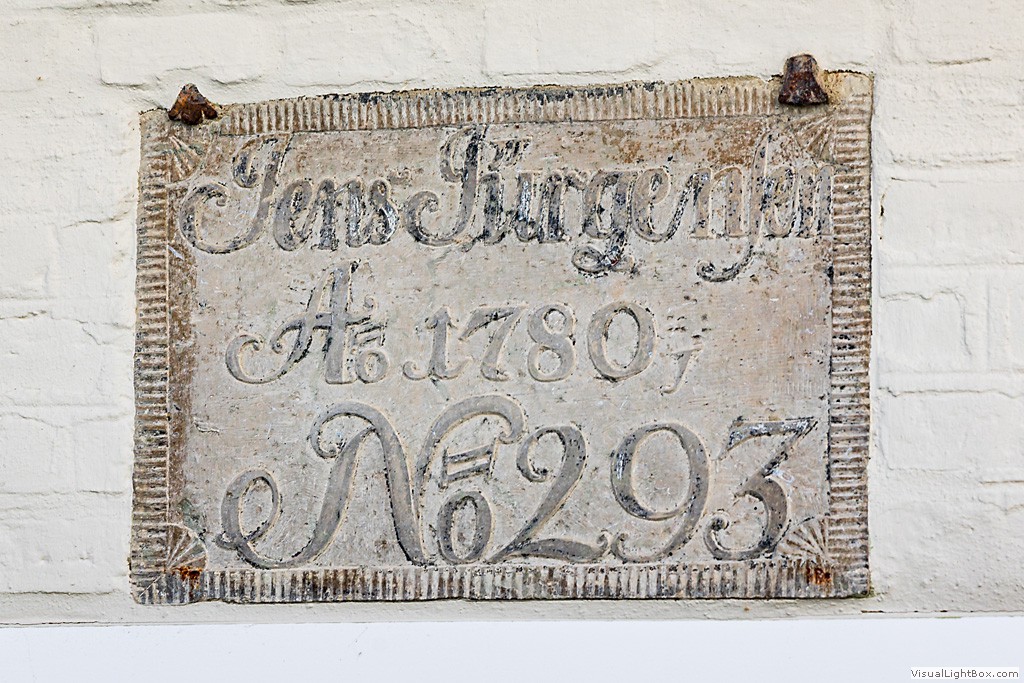 Jens Jürgensen
Ao 1780 ;
No 293
VisualLightBox.com